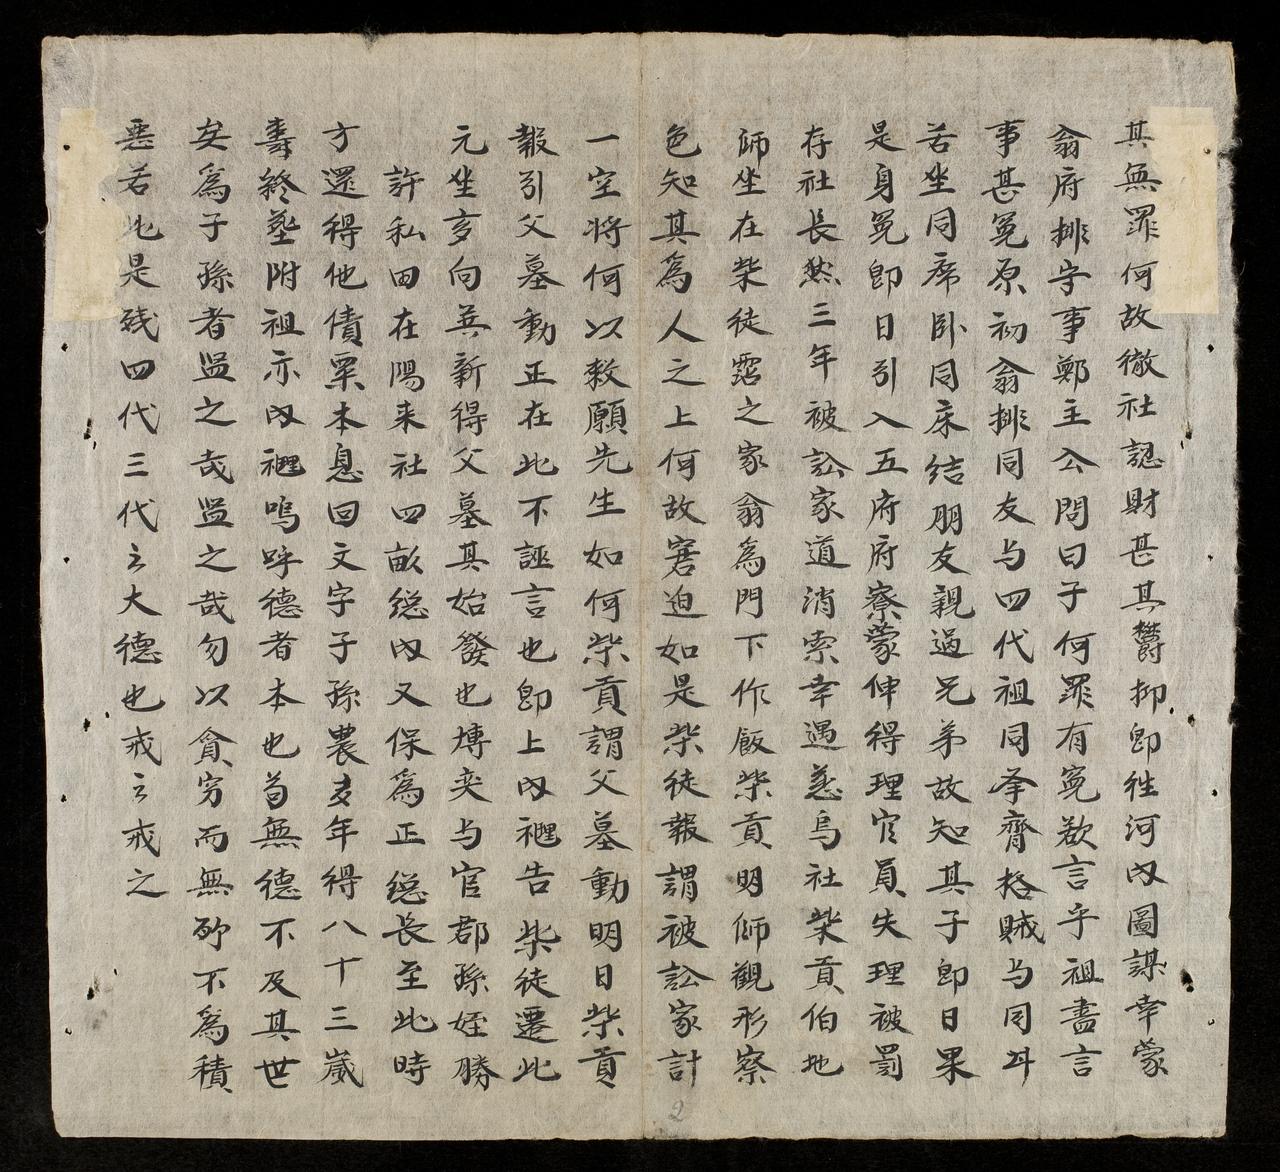 其無罪何故徹社認財甚其欝抑即徃河内圖謀幸蒙
翁府排字事鄭主公問曰子何罪有寃欲言乎祖盡言
事甚寃原初翁排同友与四代祖同夆齊格賊与同斗
苦坐同席卧同床结朋友親過兄弟故知其子即日果
是身寃即日引入五府府寮蒙伸得理官員失理被罰
存社長然三年被訟家道消索幸遇慈烏社柴貢伯地
師坐在柴徒露之家翁爲門下作飯柴貢明師觀形察
色知其爲人之上何故窘迫如是柴徒報謂被訟家計
一空将何以救願先生如何柴貢謂父墓動明日柴貢
報引父墓動正在此不誣言也即上内禮告柴徒遷此
元坐亥向𦵏新得父墓其始發也塼奕与官郡孫姪勝
許私田在陽来社四畝縂内又保爲正縂長至此時
方還得他債粟本息回文字子孫農多年得八十三歲
壽終塟附祖亦内禮嗚呼德者本也苟無德不及其世
矣爲子孫者监之哉监之哉勿以貪穷而無所不爲積
惡若此是残四代三代之大德也戒之戒之
2